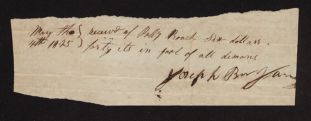 May the } received of Polly Roach Six dollars
4th 1825 } forty cts in full of all demans
Joseph